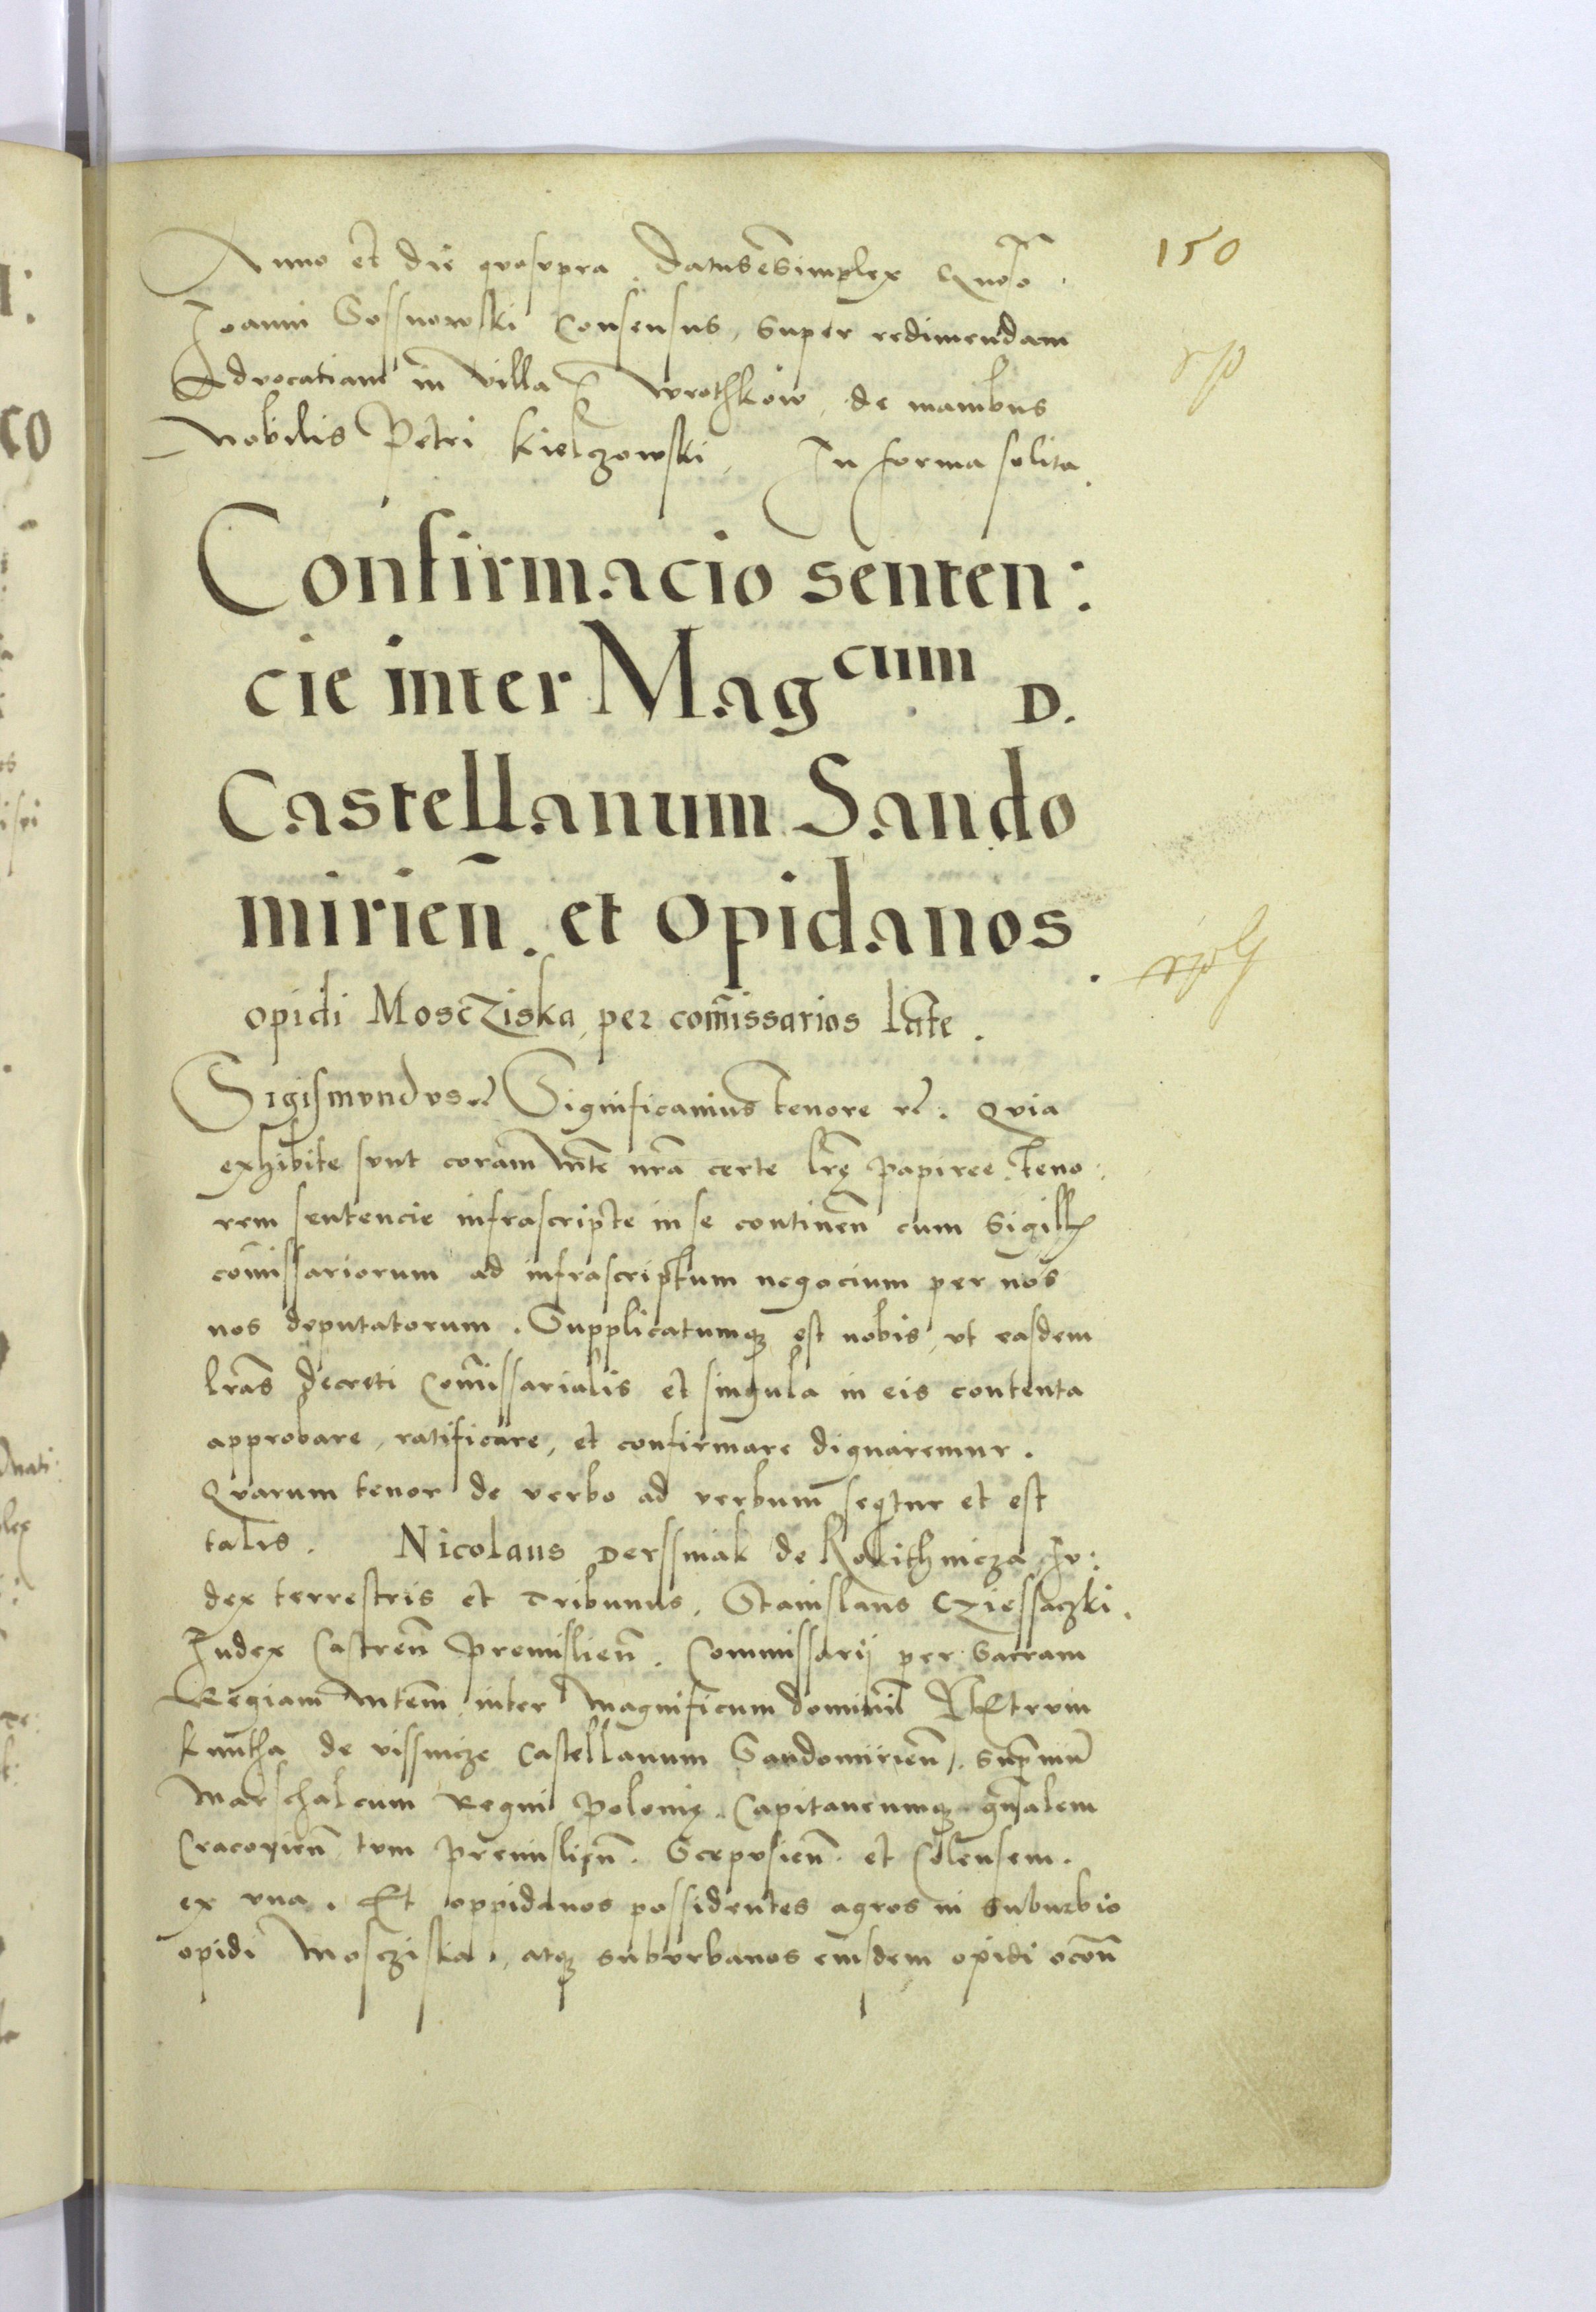 150
Anno et die quosupra. Datus e simplex
Joanni Sossnowski Consensus, super redimendam
Advocatiam in villa Wrothkow, de manibus
Nobilis Petri Kielczowski, In forma solita.
Confirmacio senten:
cie inter Mag^cum D.
Castellanum Sando
mirien̄. et opidanos.
opidi Moscziska, per com̄issarios late.
Sigismundus etc. Significamus tenore etc. Quia
exhibite sunt coram Mte nr̄a certe lr̄ę papiree, teno:
rem sentencie infrascripte in se continen̄ cum sigill
com̄issariorum ad infrascriptum negocium per nos
nos deputatorum. Supplicatumq; est nobis, ut easdem
lr̄as decreti Com̄issarialis et singula in eis contenta
approbare, ratificare, et confirmare dignaremur.
Quarum tenor de verbo ad verbum seqtur et est
talis. Nicolaus Derssniak de Rokithnicza Ju:
dex terrestris et Tribunus, Stanislaus Cziessaczki.
Judex Castren̄ Premislien̄. Commissarij per Sacram
Regiam Mtem̄ inter Magnificum dominū Petrum
Kmitha de Vissnicze Castellanum Sandomirien̄, Supmū
Marschalcum Regni Polonię. Capitaneumq; gn̄alem
Cracovien̄ tum Premislien̄. Scepusien̄. et Colensem.
ex una. Et oppidanos possidentes agros in suburbio
opidi Mosciska, atq; suburbanos eiusdem opidi